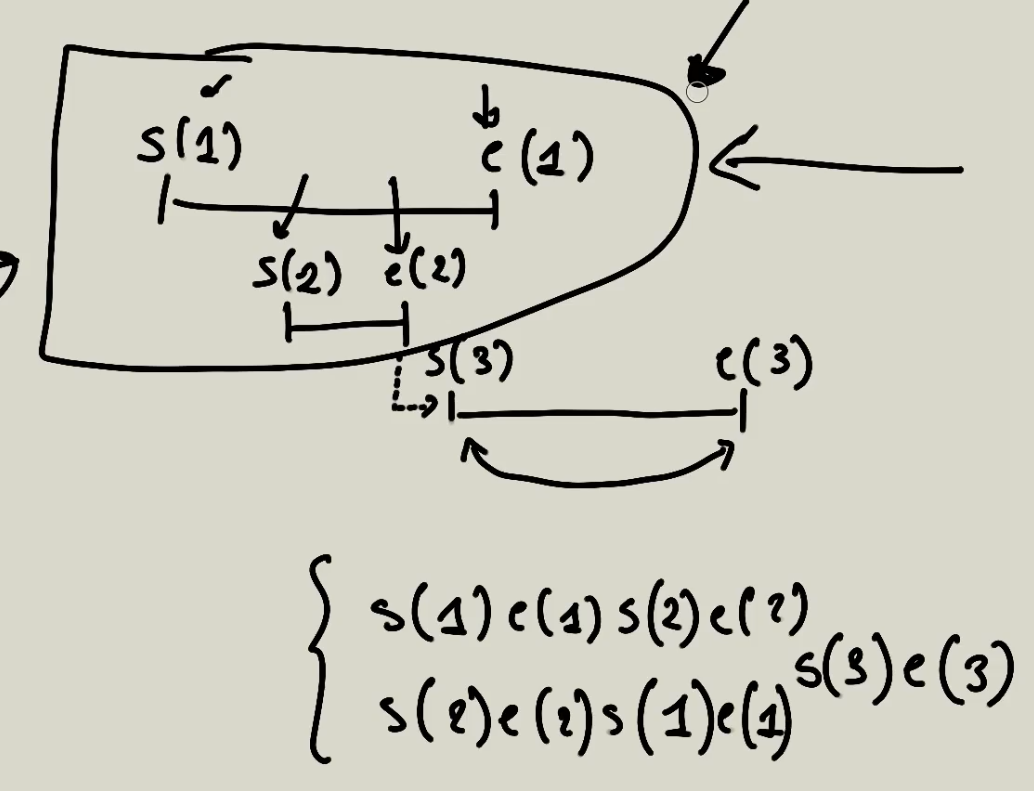 s(1) e(1)
s(2) e(2)
s(3) e(3)
s(1) e(1) s(2) e(2)
s(3) e(3)
s(2) e(2) s(1) e(1)